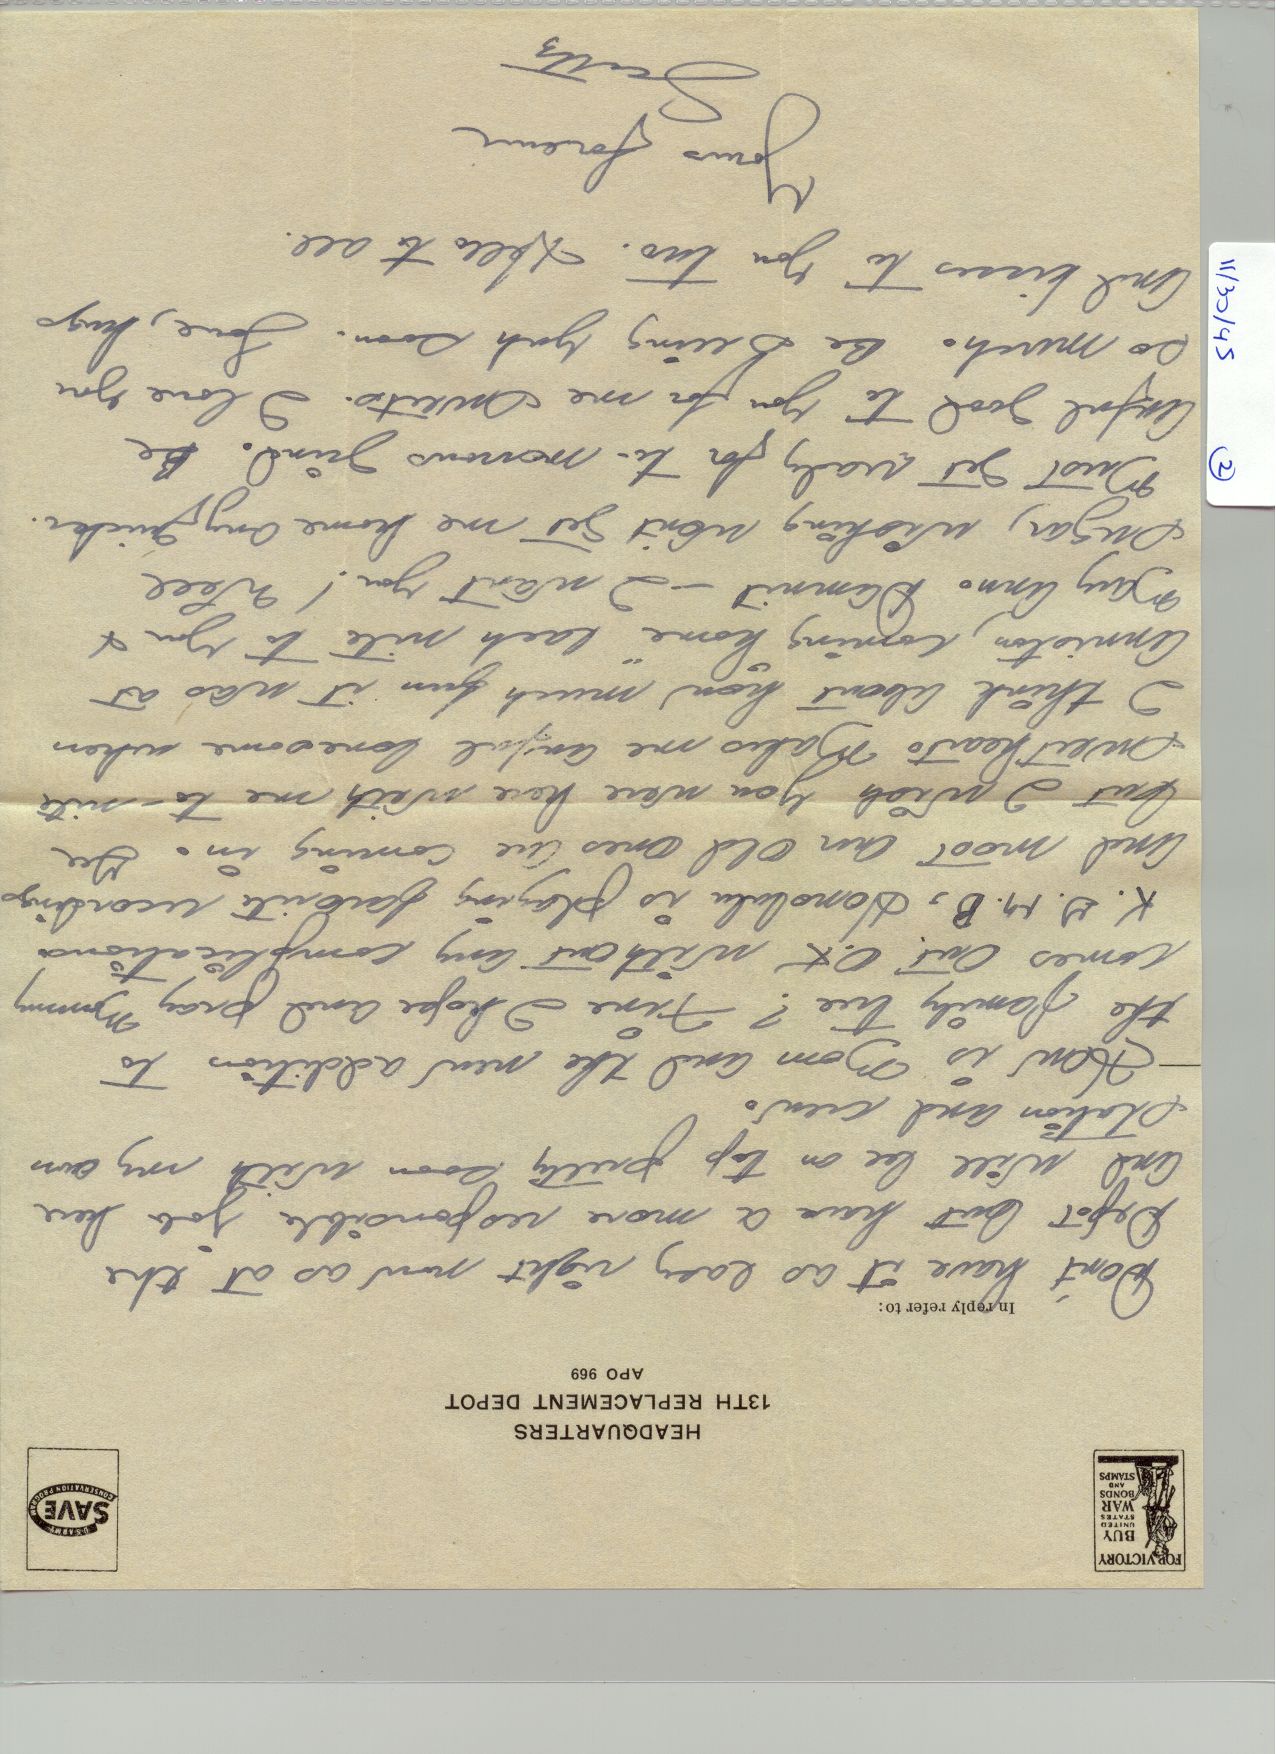 FOR VICTORY
BUY
UNITED
STATES
WAR
BONDS
AND
STAMPS
U·S·ARMY
SAVE
CONSERVATION PROGRAM
HEADQUARTERS
13TH REPLACEMENT DEPOT
APO 969
In reply refer to:
Don't have it as easy right now as at the
Depot but have a more responsible job here
and will be on top pretty soon with my own
station and crew.
How is Mom and the new addition to
the family tree? Fine I hope and pray Mommy
comes out O.K. without any complications
K. G. M. B, Honolulu is playing favorite recordings
and most are old ones are coming in. Gee
but I wish you were here with me to-nite
Sweethearts Makes me awful lonesome when
I think about how much fun it was at
Anniston, coming "home" each nite to you &
Mary Ann. Damnit — I want you! Well
Sugar, wishing won't get me home any quicker.
Must get ready for to-morrows grind. Be
awful good to you for me Sweets. I love you
so much. Be seeing yuh soon. Love, hugs
and kisses to you two. Hello to all.
Yours forever
Scotty
11/30/45
2